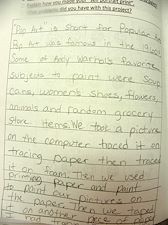 Explain how you made your "self portrait print".
did you have with this project?
Pop Art is short for Popular
Pop Art was famous in the 1960
Some of Andy Warhol's favorite
subjects to paint were soup
cans, women's shoes, flowers,
animals and random grocery
store items. We took a picture
on the computer traced it on
tracing paper then traced
it on foam. Then we used
printing paper and paint
to paint our pictures on
the paper. Then we taped
it on another piece of paper